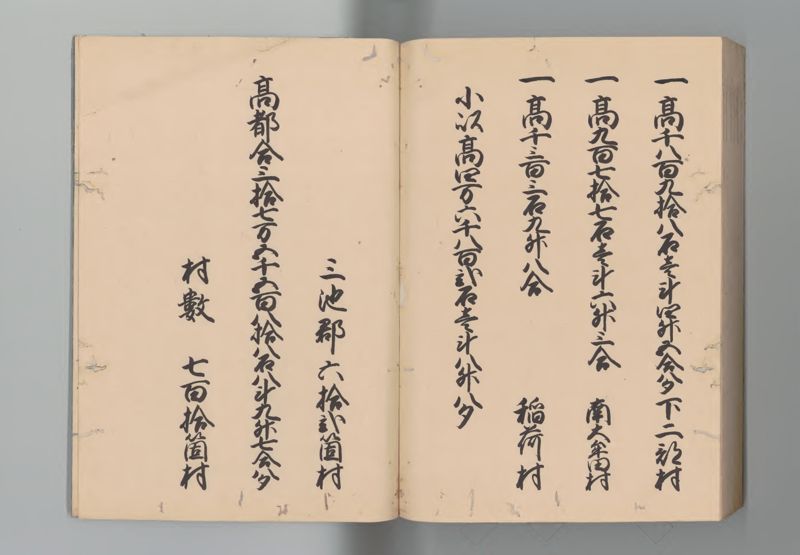 一高千八百九拾八石壱斗四升五合八夕 下二部村
一高九百七拾七石壱斗六升三合 南大牟田村
一高千三百三石九升八合 稲荷村
小以高四万六千八百弐石壱斗八升八夕
三池郡六拾弐箇村
高都合三拾七万五千五百八拾八石八斗九升七合八夕
村數 七百拾箇村